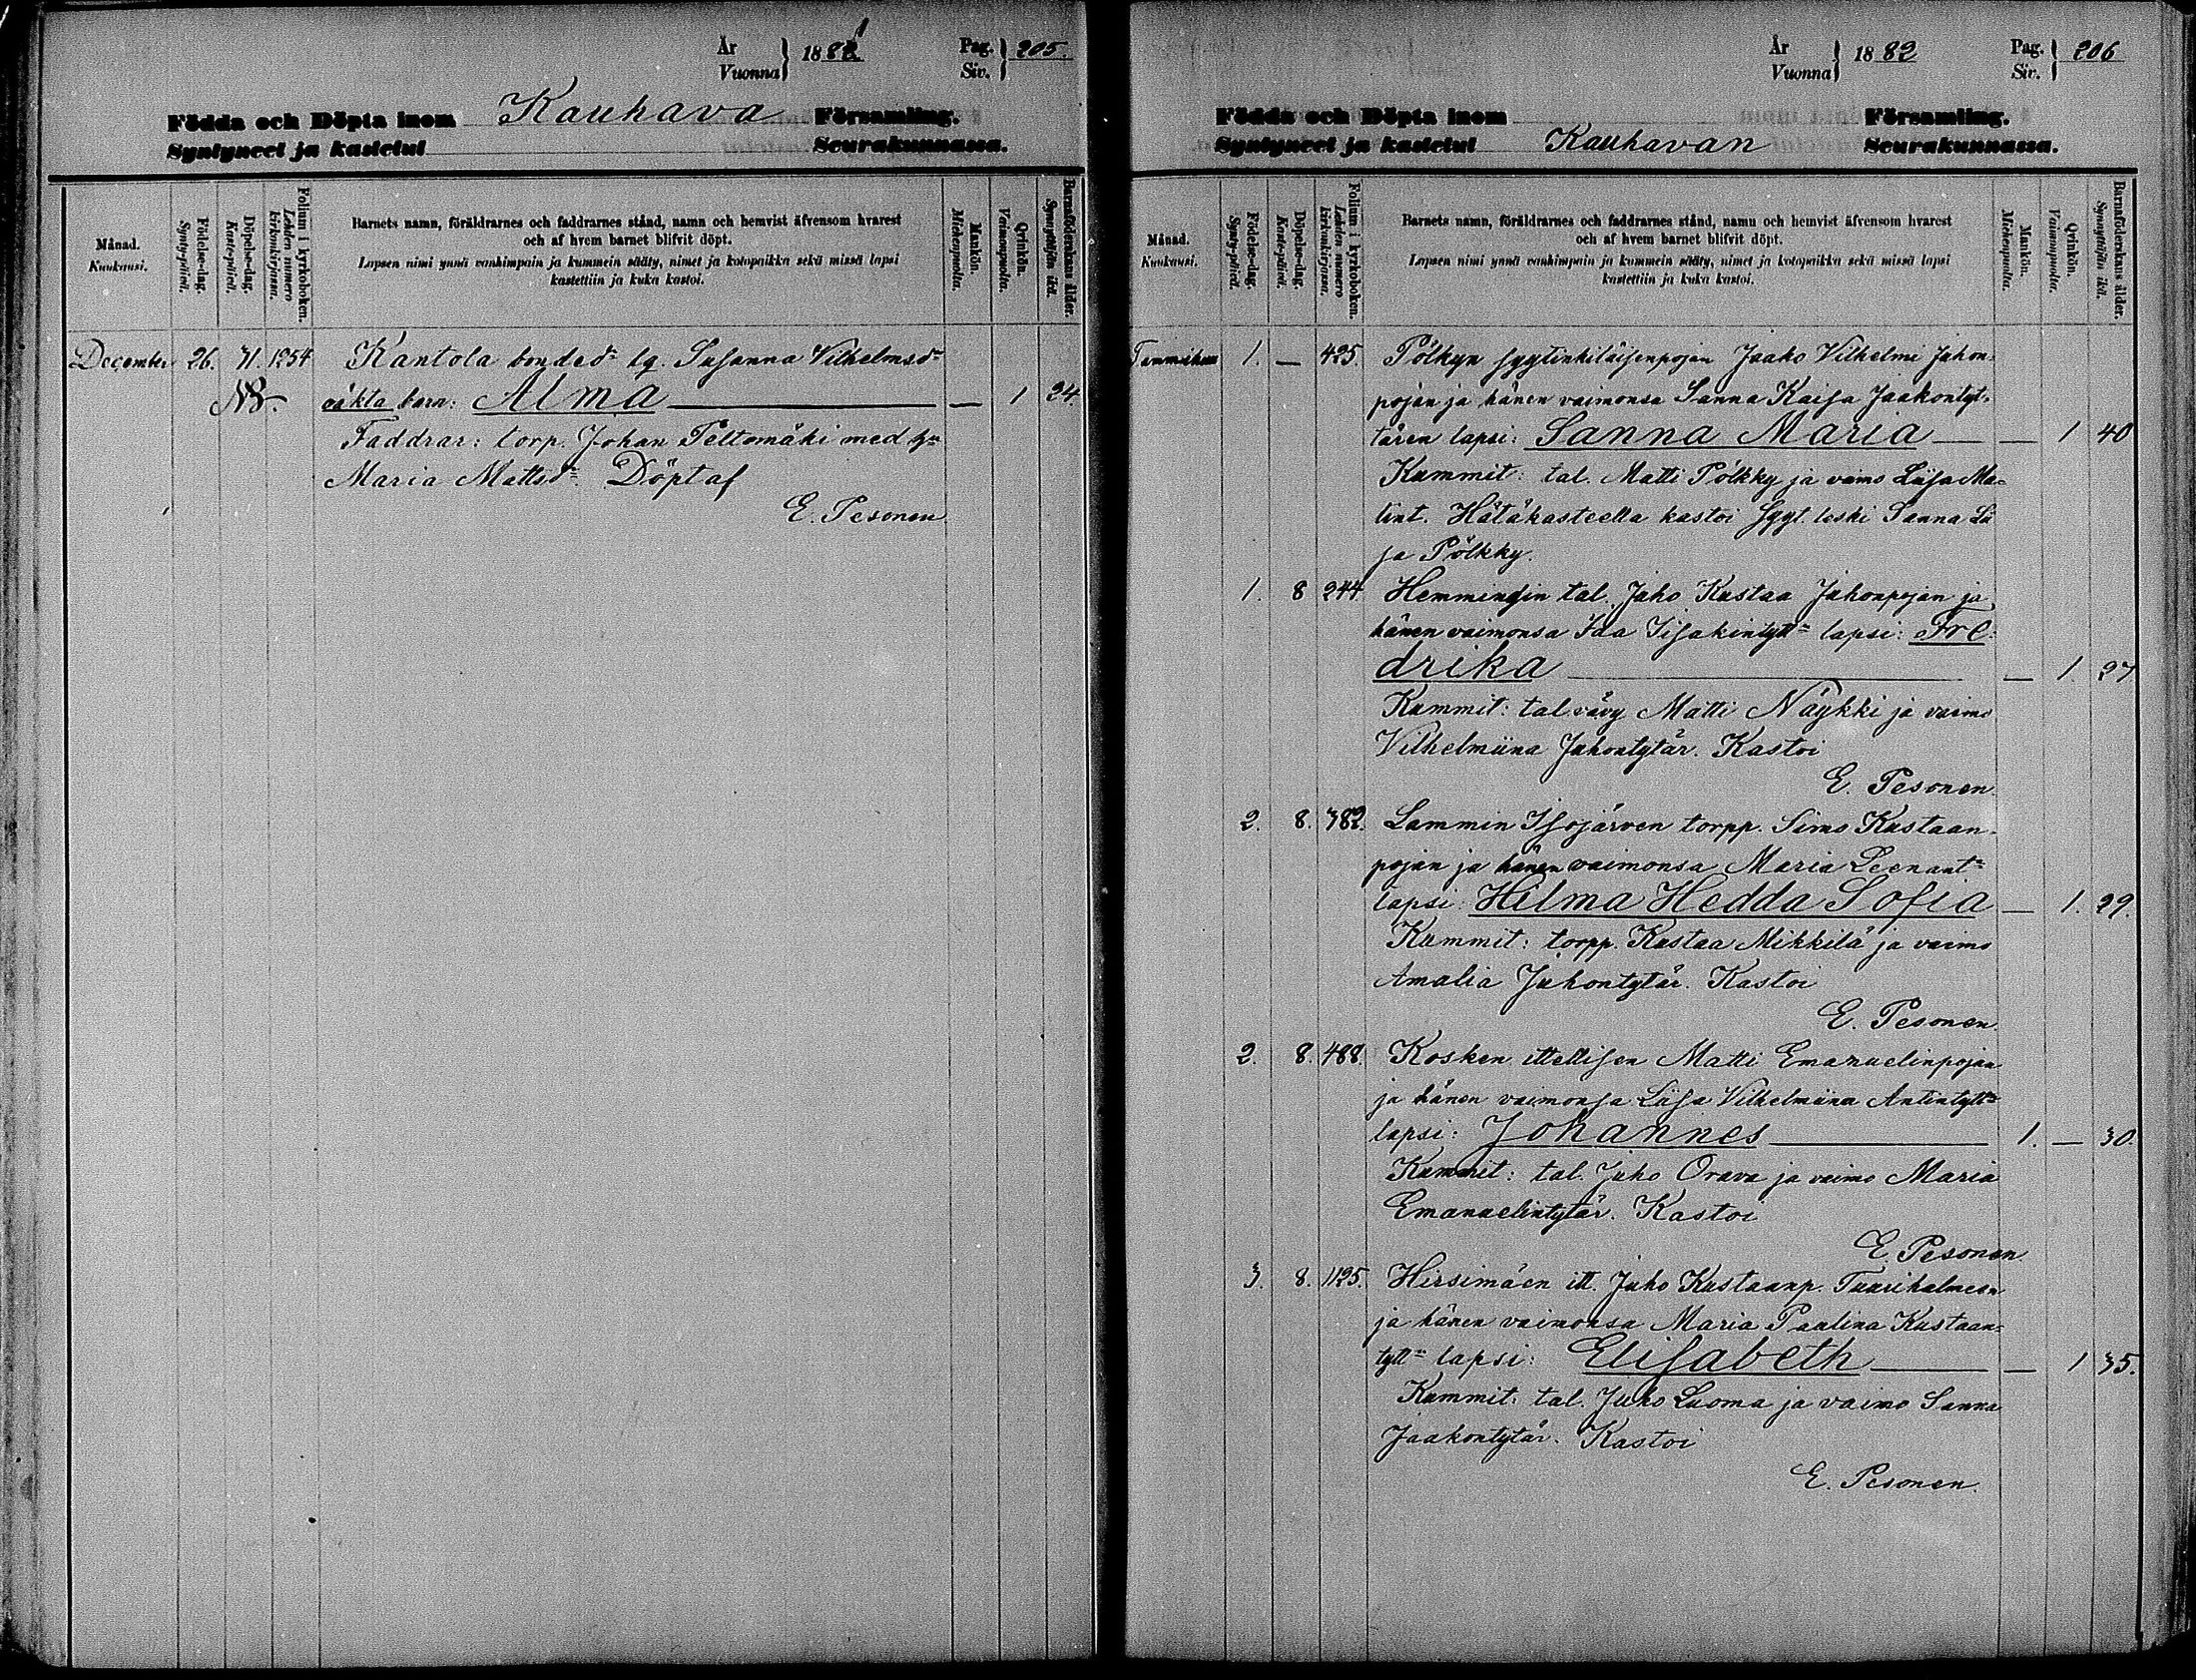 År
Vuonna } 1881 Pag.
Siv. } 205.
Födda och Döpta inom Kauhava Församling.
Syntyneet ja kastetut Seurakunnassa.
Månad.
Kuukausi.
Födelse-dag.
Synty-päivä.
Döpelse-dag.
Kaste-päivä.
Folium i kyrkoboken.
Lehden numero kirkonkirjassa.
Barnets namn, föräldrarnes och faddrarnes stånd, namn och hemvist äfvensom hvarest
och af hvem barnet blifvit döpt.
Lapsen nimi ynnä vanhimpain ja kummein sääty, nimet ja kotopaikka sekä missä lapsi
kastettiin ja kuka kastoi.
Mankön.
Miehenpuolta.
Qvinkön.
Vaimonpuolta.
Barnföderskans ålder.
Synnyttäjän ikä.
December 26. 31. 1254 Kantola bonded:r lg. Susanna Vilhelmsd:r
NB. oäkta barn: Alma — 1 24
Faddrar: torp. Johan Peltomäki med h:u
Maria Mattsd:r Döpt af
E. Pesonen
År
Vuonna } 1882 Pag.
Siv. } 206
Födda och Döpta inom Församling.
Syntyneet ja kastetut Kauhavan Seurakunnassa.
Månad.
Kuukausi.
Födelse-dag.
Synty-päivä.
Döpelse-dag.
Kaste-päivä.
Folium i kyrkoboken.
Lehden numero kirkonkirjassa.
Barnets namn, föräldrarnes och faddrarnes stånd, namn och hemvist äfvensom hvarest
och af hvem barnet blifvit döpt.
Lapsen nimi ynnä vanhimpain ja kummein sääty, nimet ja kotopaikka sekä missä lapsi
kastettiin ja kuka kastoi.
Mankön.
Miehenpuolta.
Qvinkön.
Vaimonpuolta.
Barnföderskans ålder.
Synnyttäjän ikä.
Tammikuu 1. — 425. Pölkyn syytinkiläisenpojan Jaako Vilhelmi Juhon-
pojan ja hänen vaimonsa Sanna Kaisa Jaakontyt-
tären lapsi: Sanna Maria — 1 40
Kummit: tal. Matti Pölkky ja vaimo Liisa Ma-
tint. Hätäkasteella kastoi syyt. leski Sanna Lii
sa Pölkky.
1. 8 244. Hemmingin tal. Juho Kustaa Juhonpojan ja
hänen vaimonsa Ida Iisakintytt:n lapsi: Fre-
drika — 1. 27
Kummit: tal. vävy Matti Näykki ja vaimo
Vilhelmiina Juhontytär. Kastoi
E. Pesonen.
2. 8. 382. Lammin Isojärven torpp. Simo Kustaan-
pojan ja hänen vaimonsa Maria Leenant:n
lapsi: Hilma Hedda Sofia — 1. 29.
Kummit: torpp. Kustaa Mikkilä ja vaimo
Amalia Juhontytär. Kastoi
E. Pesonen.
2. 8. 488. Kosken ittellisen Matti Emanuelinpojan
ja hänen vaimonsa Liisa Vilhelmiina Antintytt:n
lapsi: Johannes 1. — 30.
Kummit: tal. Juho Orava ja vaimo Maria
Emanuelintytär. Kastoi
E Pesonen.
3. 8. 1125. Hirsimäen itt. Juho Kustaanp. Tuurihalmeen
ja hänen vaimonsa Maria Paulina Kustaan-
tytt:n lapsi: Elisabeth — 1 35.
Kummit: tal. Juho Luoma ja vaimo Sanna
Jaakontytär. Kastoi
E. Pesonen.